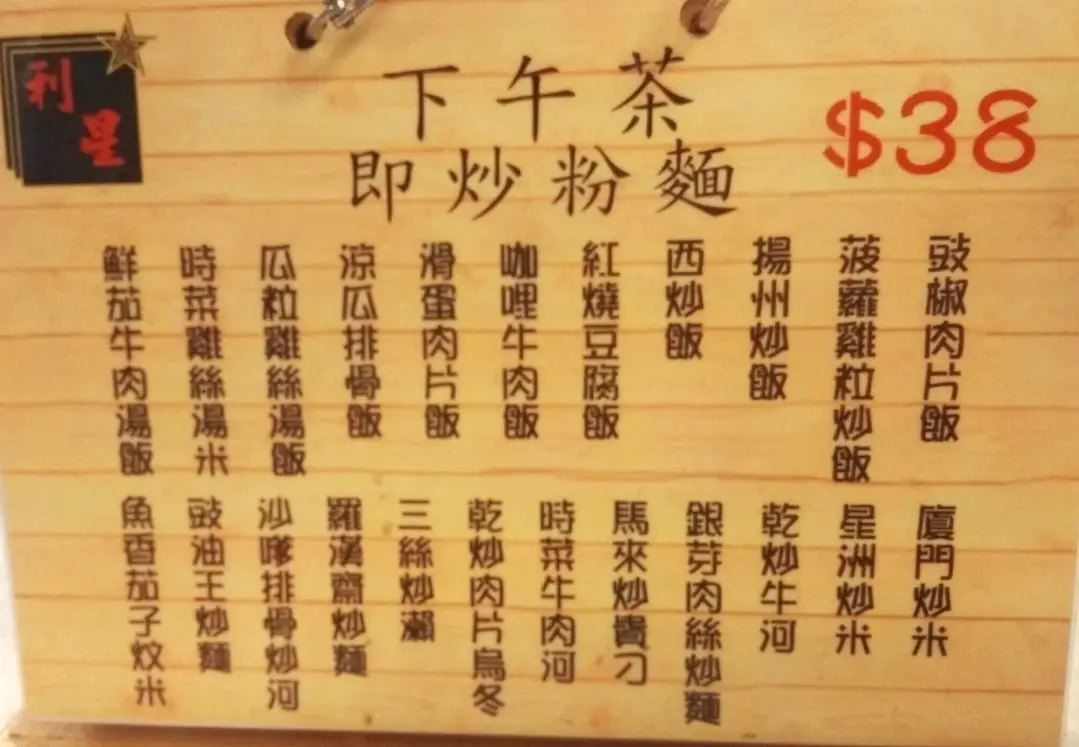 利星
下午茶
$38
即炒粉麵
豉椒肉片飯
菠蘿雞粒炒飯
揚州炒飯
西炒飯
紅燒豆腐飯
咖哩牛肉飯
滑蛋肉片飯
涼瓜排骨飯
瓜粒雞絲湯飯
時菜雞絲湯米
鮮茄牛肉湯飯
廈門炒米
星洲炒米
乾炒牛河
銀芽肉絲炒麵
馬來炒貴刁
時菜牛肉河
乾炒肉片烏冬
三絲炒瀨
羅漢齋炒麵
沙嗲排骨炒河
豉油王炒麵
魚香茄子炆米